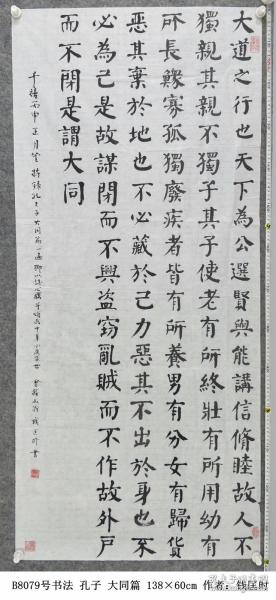 大道之行也天下為公選賢與能講信脩睦故人不
獨親其親不獨子其子使老有所終壯有所用幼有
所長鰥寡孤獨廢疾者皆有所養男有分女有歸貨
惡其棄於地也不必藏於己力惡其不出於身也不
必為己是故謀閉而不興盜竊亂賊而不作故外戶
而不閉是謂大同
千禧丙申正月
B8079号书法 孔子 大同篇 138×60cm 作者：钱匡时